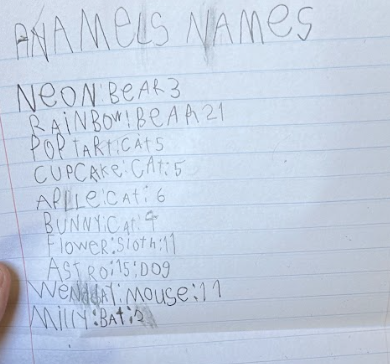 ANAMELS NAMES
NEON:BEAR3
RAiNBOW:BEAR21
POPTART:CAT5
CUPCAKe:CAt:5
APPLE:CAT:6
BUNNY:CAt:4
Flower:Sloth:11
ASTRO:15:DOg
MOUSE:11
Milly:BAt:2